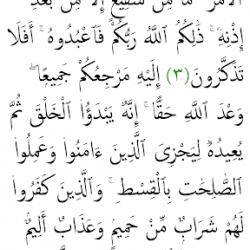 ٱلْأَمْرَ ۖ مَا مِن شَفِيعٍ إِلَّا مِنۢ بَعْدِ
إِذْنِهِۦ ۚ ذَٰلِكُمُ ٱللَّهُ رَبُّكُمْ فَٱعْبُدُوهُ ۚ أَفَلَا
تَذَكَّرُونَ (٣) إِلَيْهِ مَرْجِعُكُمْ جَمِيعًا ۖ
وَعْدَ ٱللَّهِ حَقًّا ۚ إِنَّهُۥ يَبْدَؤُا۟ ٱلْخَلْقَ ثُمَّ
يُعِيدُهُۥ لِيَجْزِىَ ٱلَّذِينَ ءَامَنُوا۟ وَعَمِلُوا۟
ٱلصَّٰلِحَٰتِ بِٱلْقِسْطِ ۚ وَٱلَّذِينَ كَفَرُوا۟
لَهُمْ شَرَابٌ مِّنْ حَمِيمٍ وَعَذَابٌ أَلِيمٌۢ